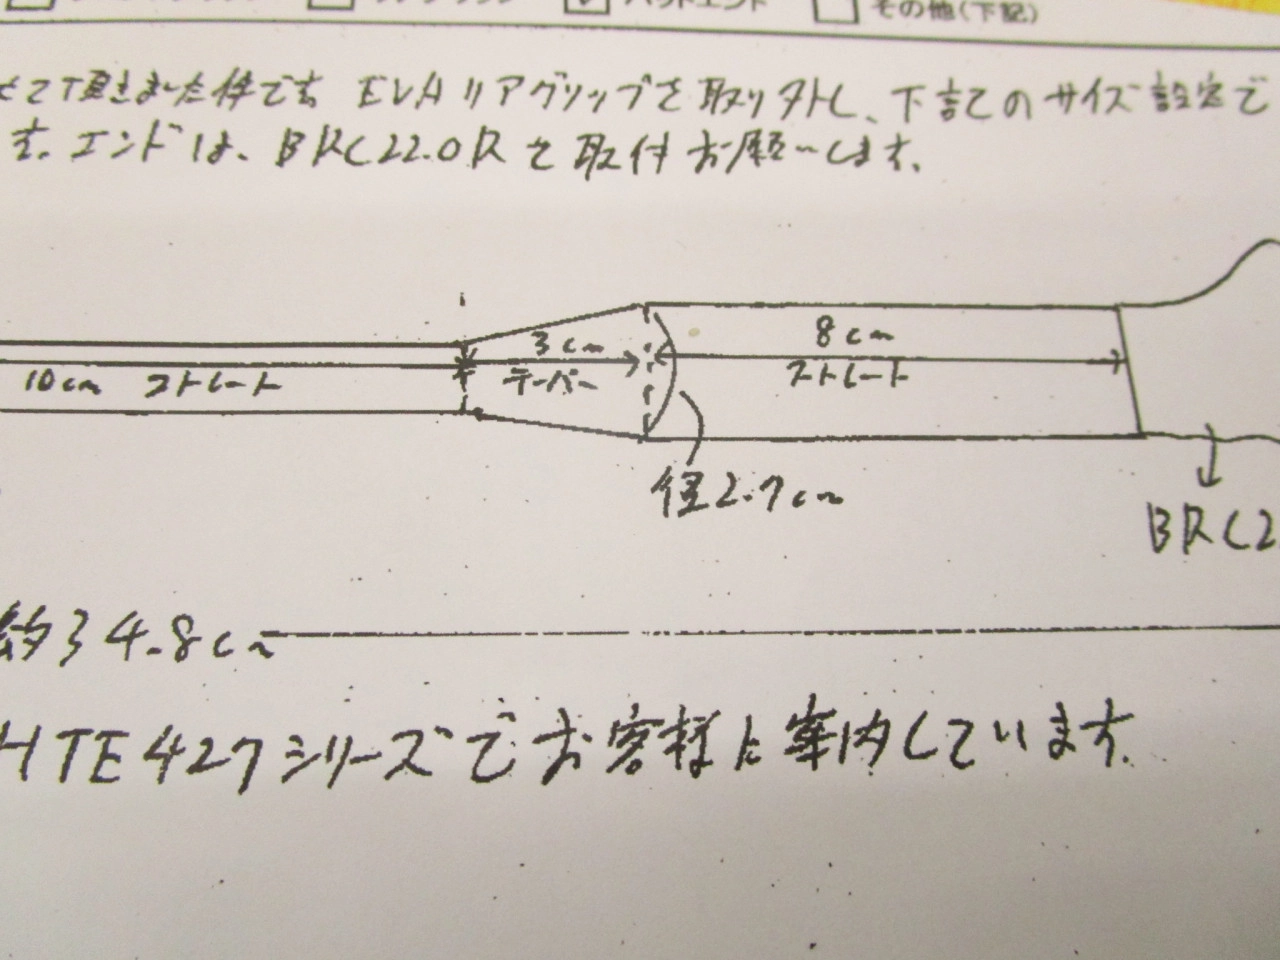 バットエンド その他(下記)
せて頂きました件です EVAリアグリップを取り外し、下記のサイズ設定で
す。エンドは、BRC22.0Rで取付お願いします。
3cm 8cm
10cm ストレート テーパー ストレート
径2.7cm
BRC2
約34.8cm
HTE427シリーズでお客様に案内しています。